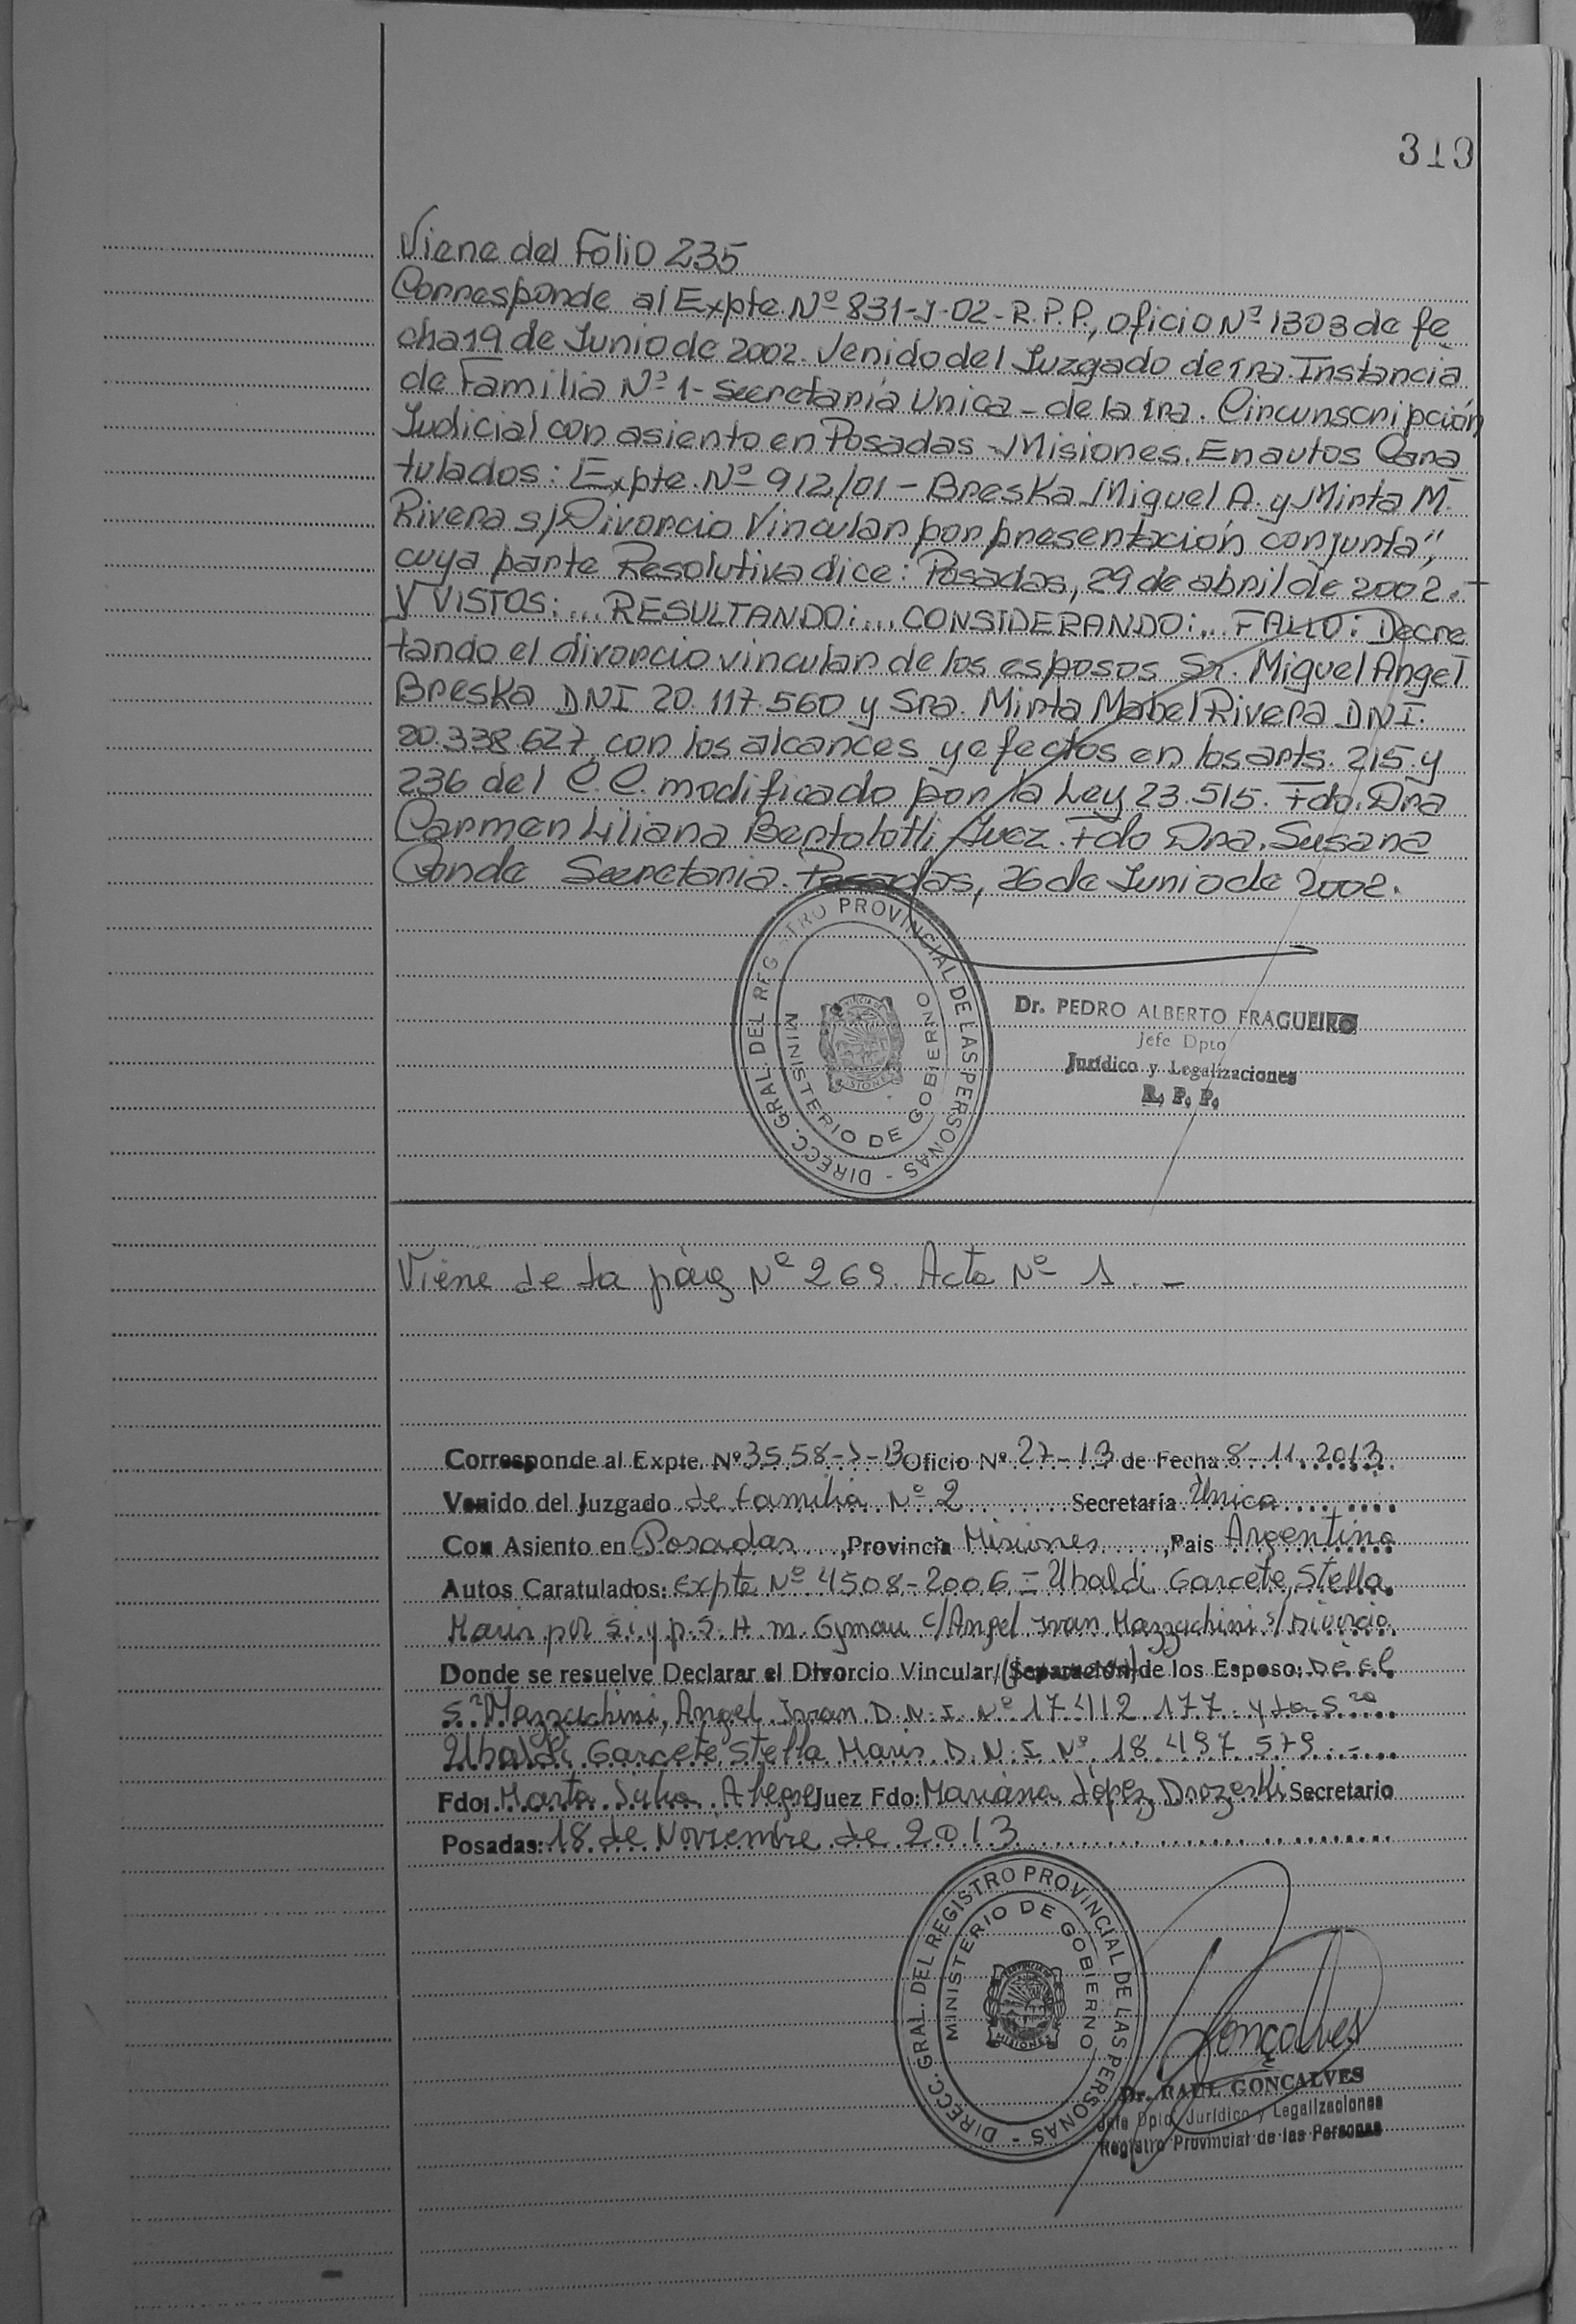 319
Viene del Folio 235
Corresponde al Expte. Nº 831-J-02-R.P.P., oficio Nº 1303 de fe
cha 19 de Junio de 2002. Venido del Juzgado de 1ra. Instancia
de Familia Nº 1 - Secretaria Unica - de la 1ra. Circunscripción
Judicial con asiento en Posadas - Misiones. En autos Cara
tulados: Expte. Nº 912/01 - Breska Miguel A. y Mirta M.
Rivera s/ Divorcio Vincular por presentación conjunta",
cuya parte Resolutiva dice: Posadas, 29 de abril de 2002. -
Y VISTOS: ... RESULTANDO: ... CONSIDERANDO: ... FALLO: Decre
tando el divorcio vincular de los esposos Sr. Miguel Angel
Breska DNI 20.117.560 y Sra. Mirta Mabel Rivera DNI.
20.338.627, con los alcances y efectos en los arts. 215 y
236 del C.C. modificado por la Ley 23.515. Fdo. Dra
Carmen Liliana Bertolotti Juez. Fdo Dra. Susana
Conde Secretaria. Posadas, 26 de Junio de 2002.
DIRECC. GRAL. DEL REGISTRO PROVINCIAL DE LAS PERSONAS -
MINISTERIO DE GOBIERNO
MISIONES
Dr. PEDRO ALBERTO FRAGUEIRO
Jefe Dpto
Jurídico y Legalizaciones
R. P. P.
Viene de la pág Nº 269. Acta Nº 1. -
Corresponde al Expte. Nº 3558-J-13 Oficio Nº 27-13 de Fecha 8-11-2013
Venido del Juzgado de familia Nº 2 Secretaría Unica
Con Asiento en Posadas, Provincia Misiones, Pais Argentina
Autos Caratulados: Expte Nº 4508-2006 = Ubaldi Garcete, Stella
Maris por si y p. S. H. m. Gyman c/ Angel Ivan Mazzachini s/ Divorcio
Donde se resuelve Declarar el Divorcio Vincular/(Separación) de los Esposo: De el
Sr Mazzachini, Angel Ivan D.N.I. Nº 17 412 177 y la Sra
Ubaldi Garcete, Stella Maris D.N.I Nº 18 497 579 -
Fdo: Marta Julia Alegre Juez Fdo: Mariana López Drozeski Secretario
Posadas: 18 de Noviembre de 2013
DIRECC. GRAL. DEL REGISTRO PROVINCIAL DE LAS PERSONAS -
MINISTERIO DE GOBIERNO
MISIONES
Gonçalves
Dr. RAUL GONÇALVES
Jefe Dpto. Jurídico y Legalizaciones
Registro Provincial de las Personas